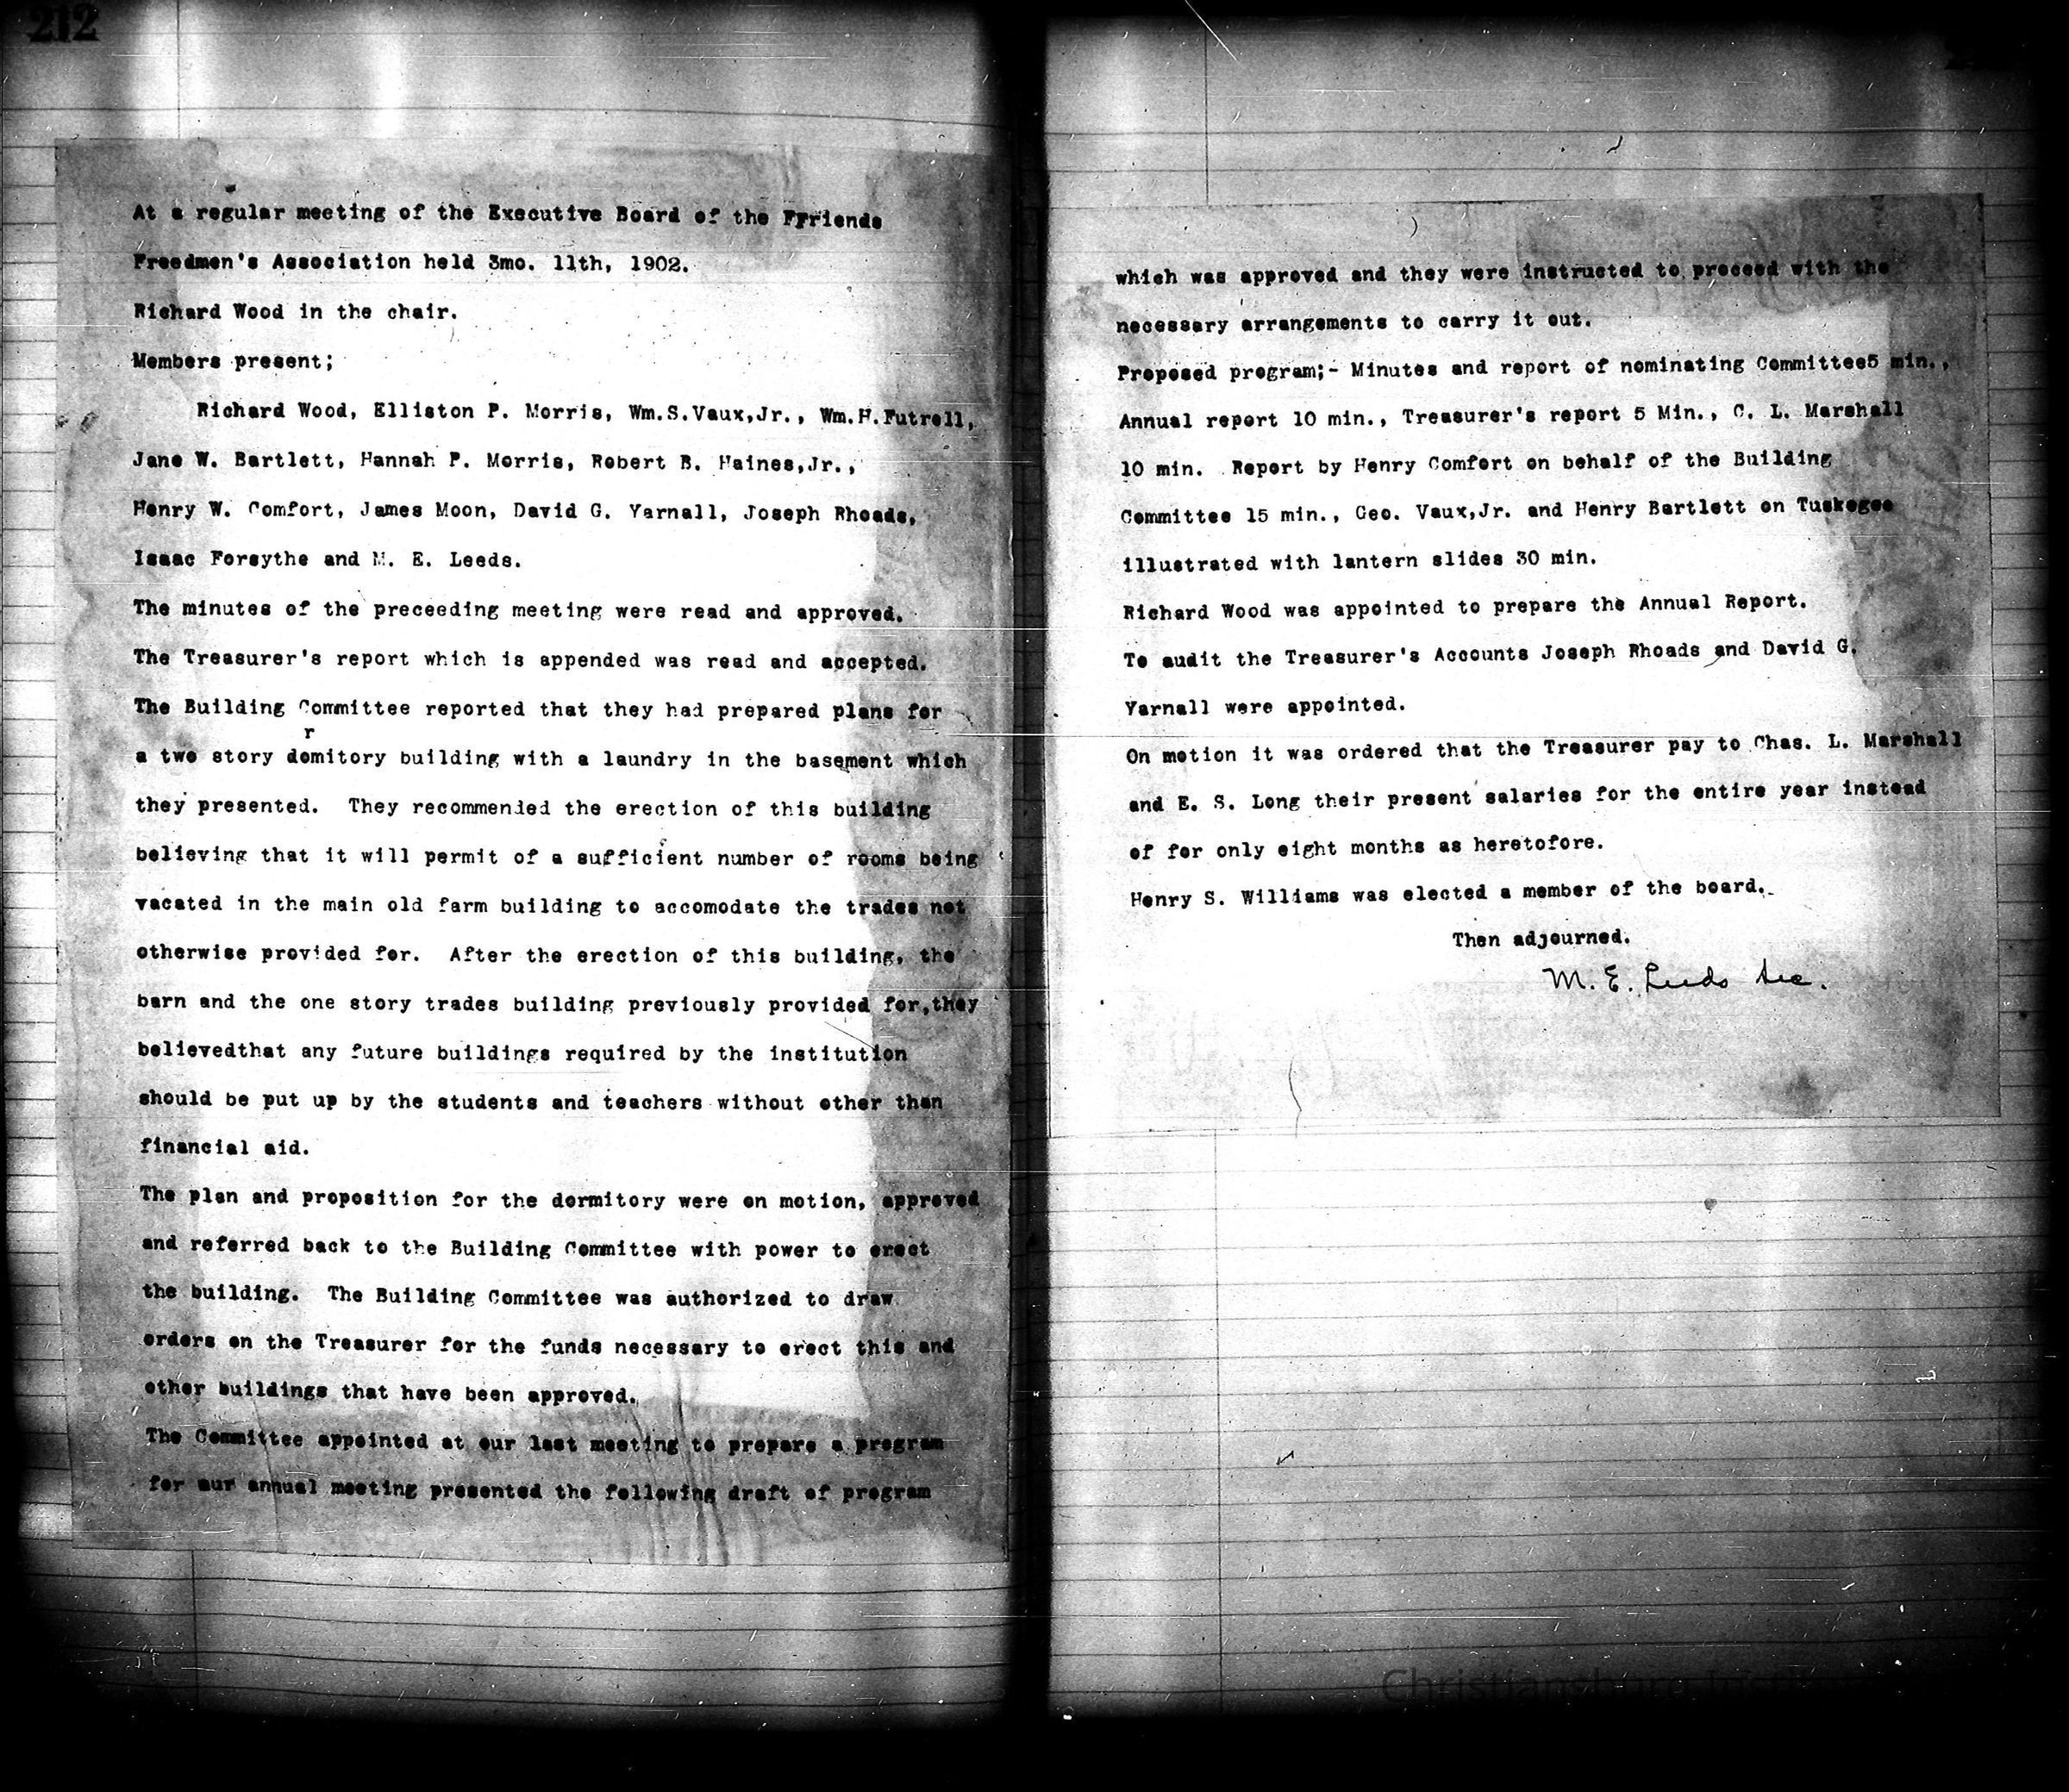 212
At a regular meeting of the Executive Board of the FFriends
Freedmen's Association held 3mo. 11th, 1902.
Richard Wood in the chair.
Members present;
Richard Wood, Elliston P. Morris, Wm.S.Vaux,Jr., Wm.H.Futrell,
Jane W. Bartlett, Hannah P. Morris, Robert B. Haines,Jr.,
Henry W. Comfort, James Moon, David G. Yarnall, Joseph Rhoads,
Isaac Forsythe and M. E. Leeds.
The minutes of the preceeding meeting were read and approved.
The Treasurer's report which is appended was read and accepted.
The Building Committee reported that they had prepared plans for
r
a two story domitory building with a laundry in the basement which
they presented. They recommended the erection of this building
believing that it will permit of a sufficient number of rooms being
vacated in the main old farm building to accomodate the trades not
otherwise provided for. After the erection of this building, the
barn and the one story trades building previously provided for,they
believedthat any future buildings required by the institution
should be put up by the students and teachers without other than
financial aid.
The plan and proposition for the dormitory were on motion, approved
and referred back to the Building Committee with power to erect
the building. The Building Committee was authorized to draw
orders on the Treasurer for the funds necessary to erect this and
other buildings that have been approved.
The Committee appointed at our last meeting to prepare a program
for our annual meeting presented the following draft of program
which was approved and they were instructed to proceed with the
necessary arrangements to carry it out.
Proposed program;- Minutes and report of nominating Committee5 min.,
Annual report 10 min., Treasurer's report 5 Min., C. L. Marshall
10 min. Report by Henry Comfort on behalf of the Building
Committee 15 min., Geo. Vaux,Jr. and Henry Bartlett on Tuskegee
illustrated with lantern slides 30 min.
Richard Wood was appointed to prepare the Annual Report.
To audit the Treasurer's Accounts Joseph Rhoads and David G.
Yarnall were appointed.
On motion it was ordered that the Treasurer pay to Chas. L. Marshall
and E. S. Long their present salaries for the entire year instead
of for only eight months as heretofore.
Henry S. Williams was elected a member of the board.
Then adjourned.
M. E. Leeds Sec.